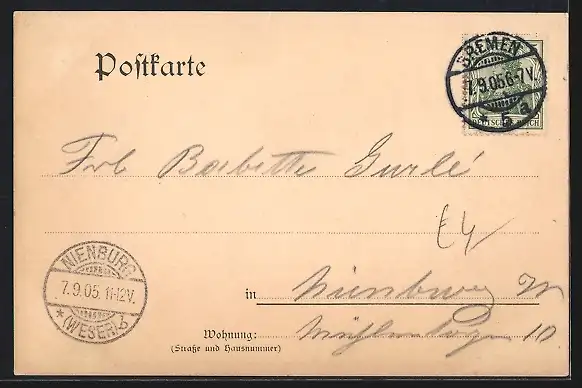 Postkarte
BREMEN
9.05 6-7V.
* 5 a
DEUTSCHES REICH
Frl Babette Gurlé
E4
NIENBURG
7.9.05. 11-12V.
* (WESER) b
in Nienburg W
Wohnung: 10
(Straße und Hausnummer)